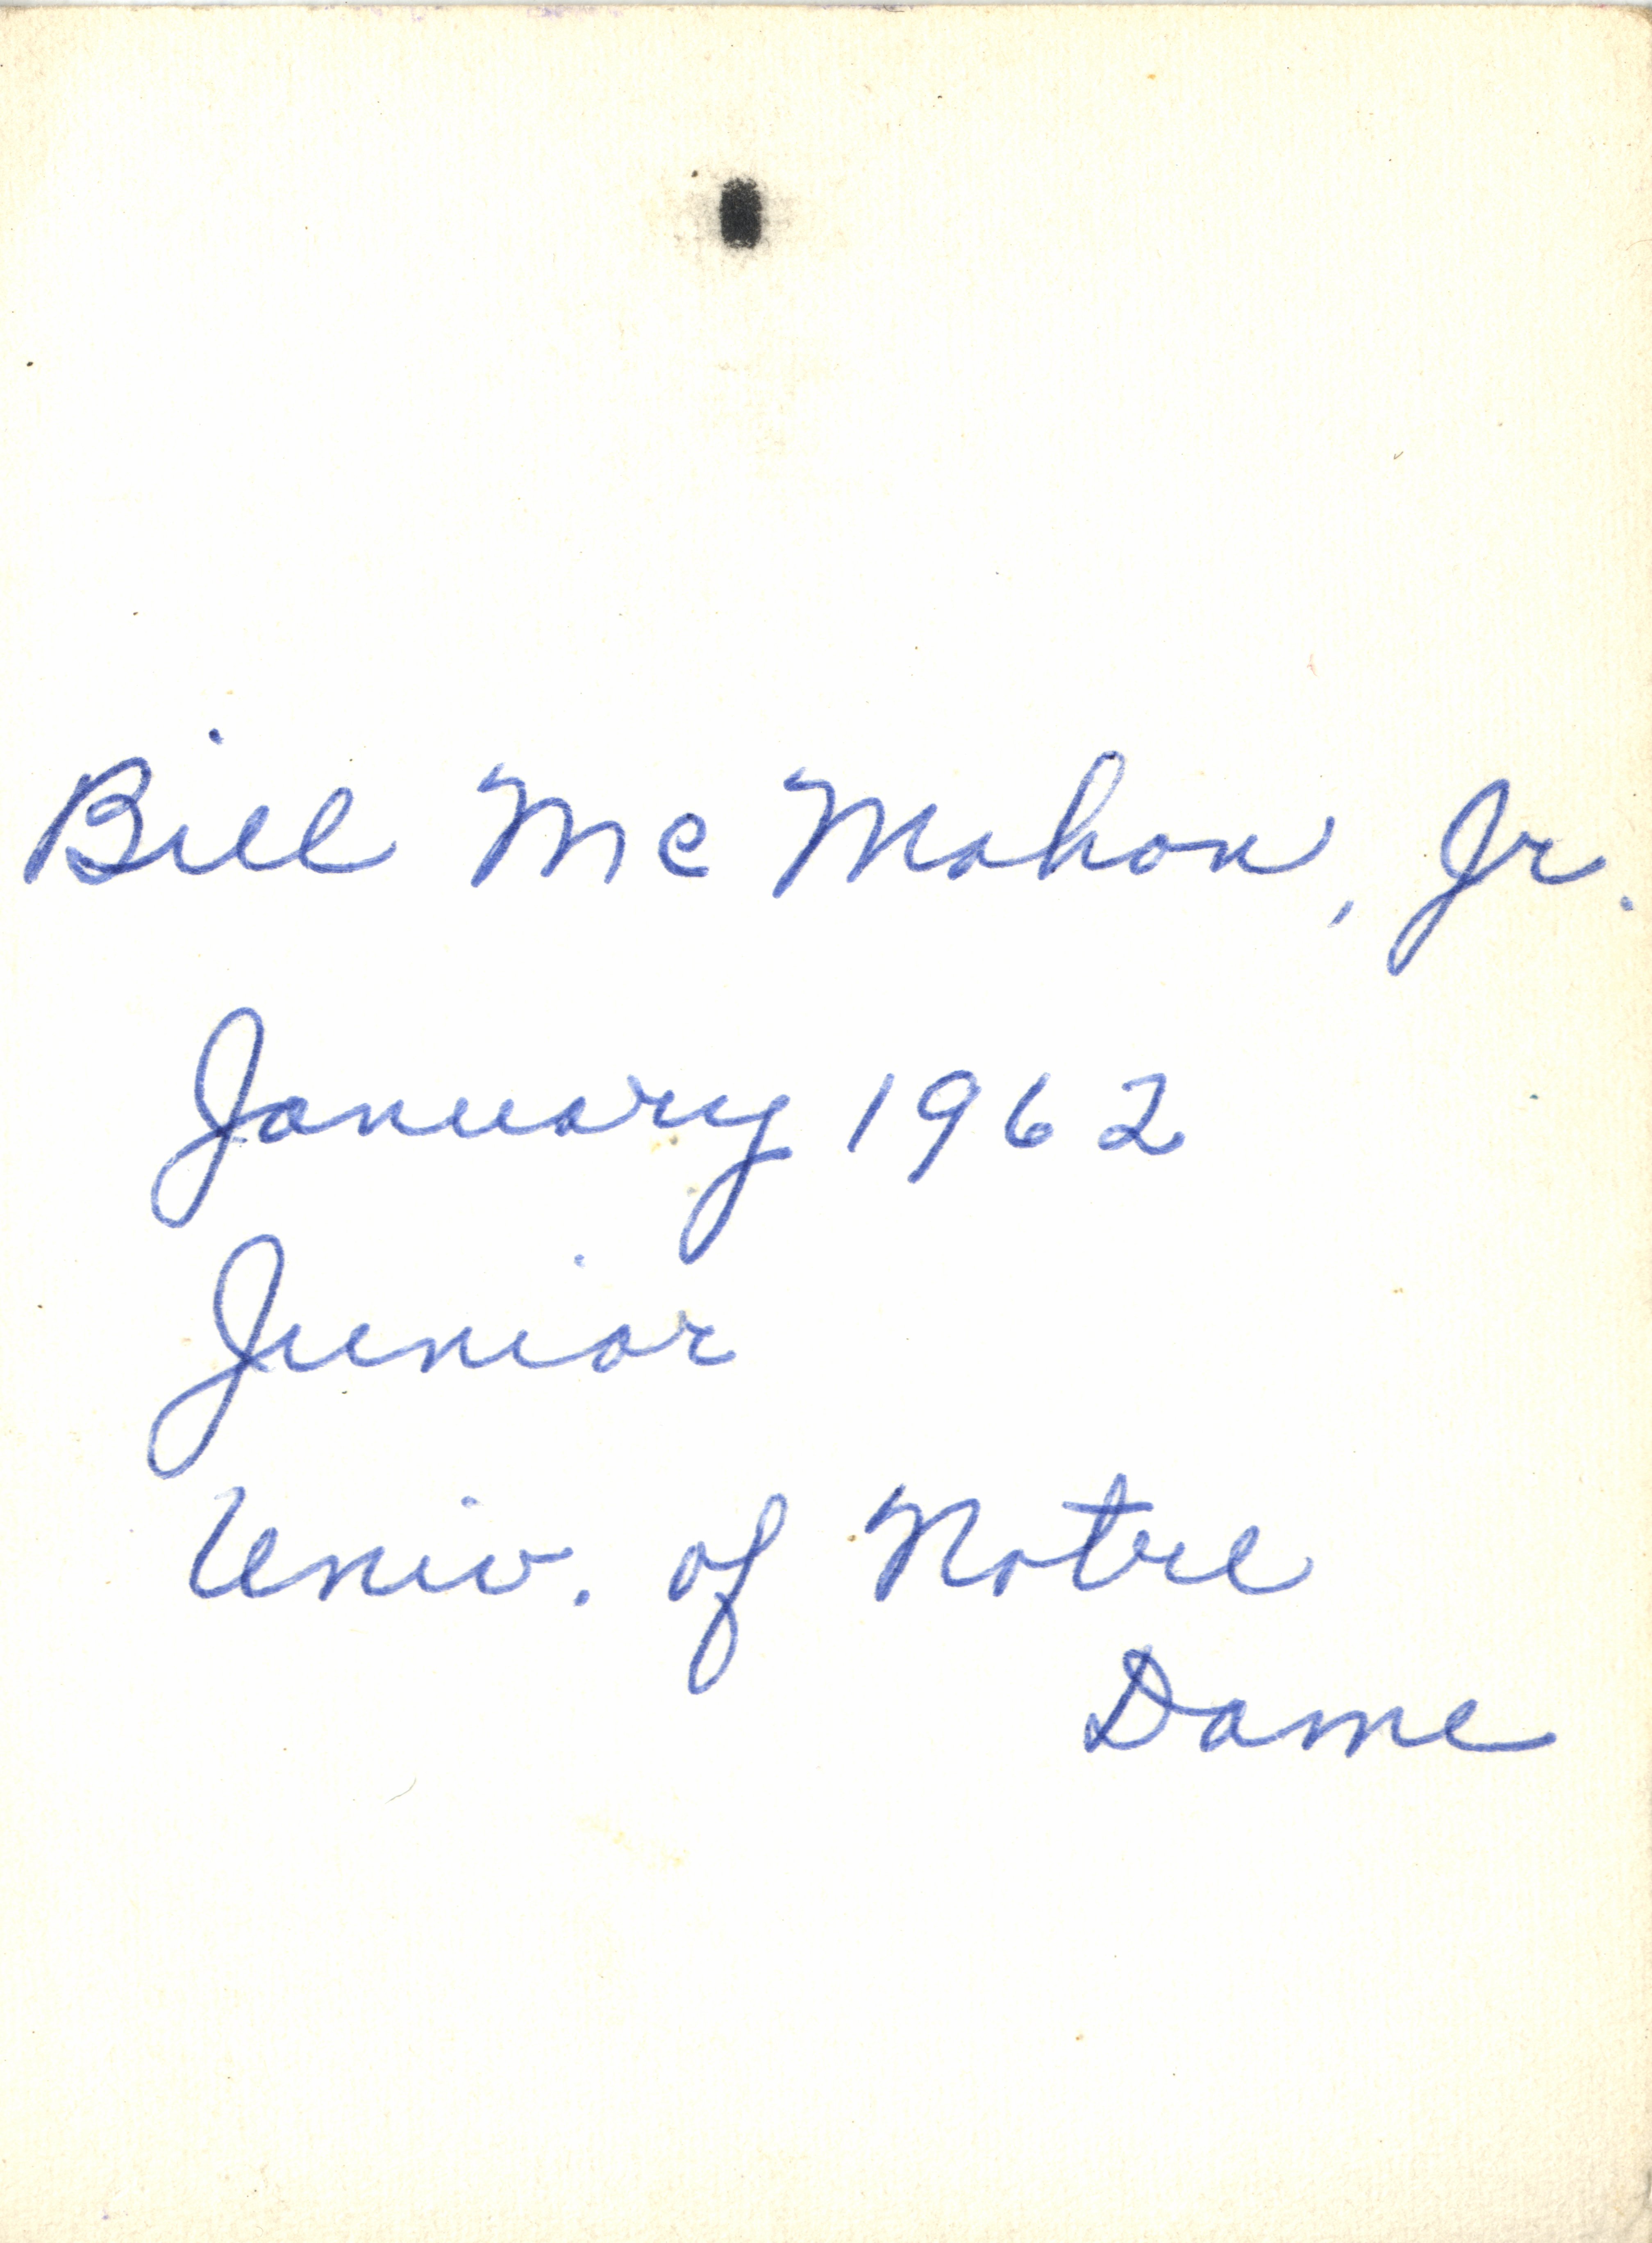 Bill McMahon, Jr.
January 1962
Junior
Univ. of Notre
Dame